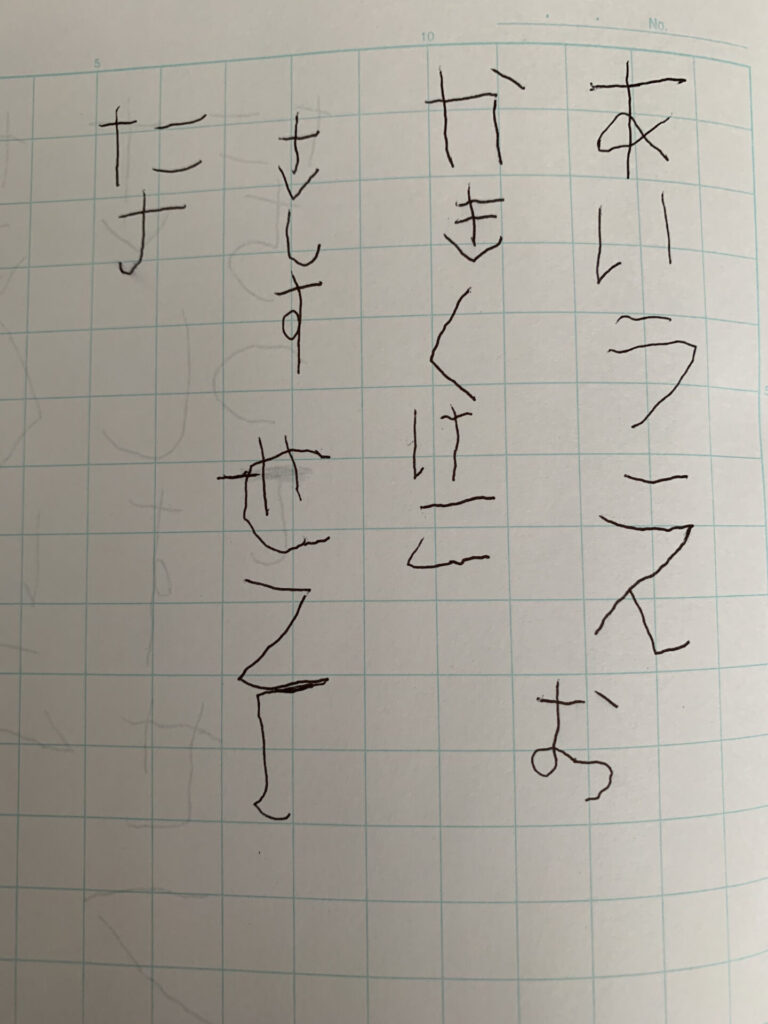 あいうえお
かきくけこ
さしすせそ
たち
5
10
No.